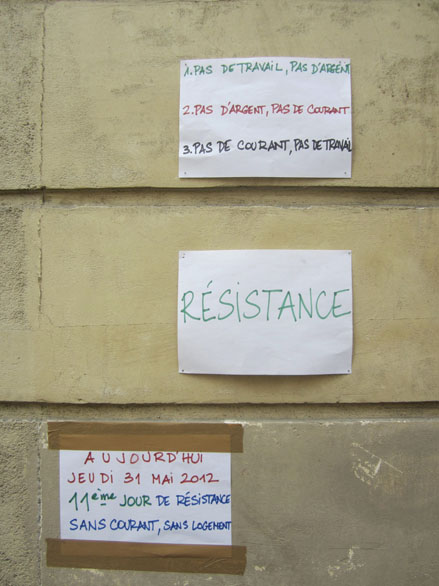 1. PAS DE TRAVAIL, PAS D'ARGENT
2. PAS D'ARGENT, PAS DE COURANT
3. PAS DE COURANT, PAS DE TRAVAIL
RÉSISTANCE
AUJOURD'HUI
JEUDI 31 MAI 2012
11ème JOUR DE RÉSISTANCE
SANS COURANT, SANS LOGEMENT